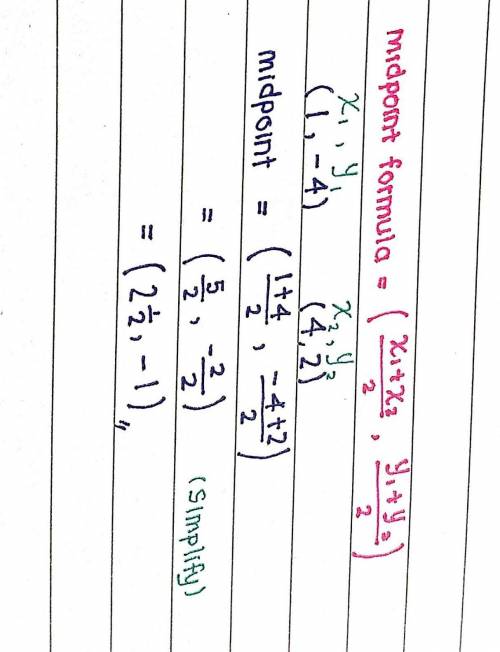 midpoint formula = (x₁+x₂/2, y₁+y₂/2)
x₁, y₁ x₂, y₂
(1, -4) (4, 2)
midpoint = (1+4/2, -4+2/2)
= (5/2, -2/2) (simplify)
= (2½, -1)〃